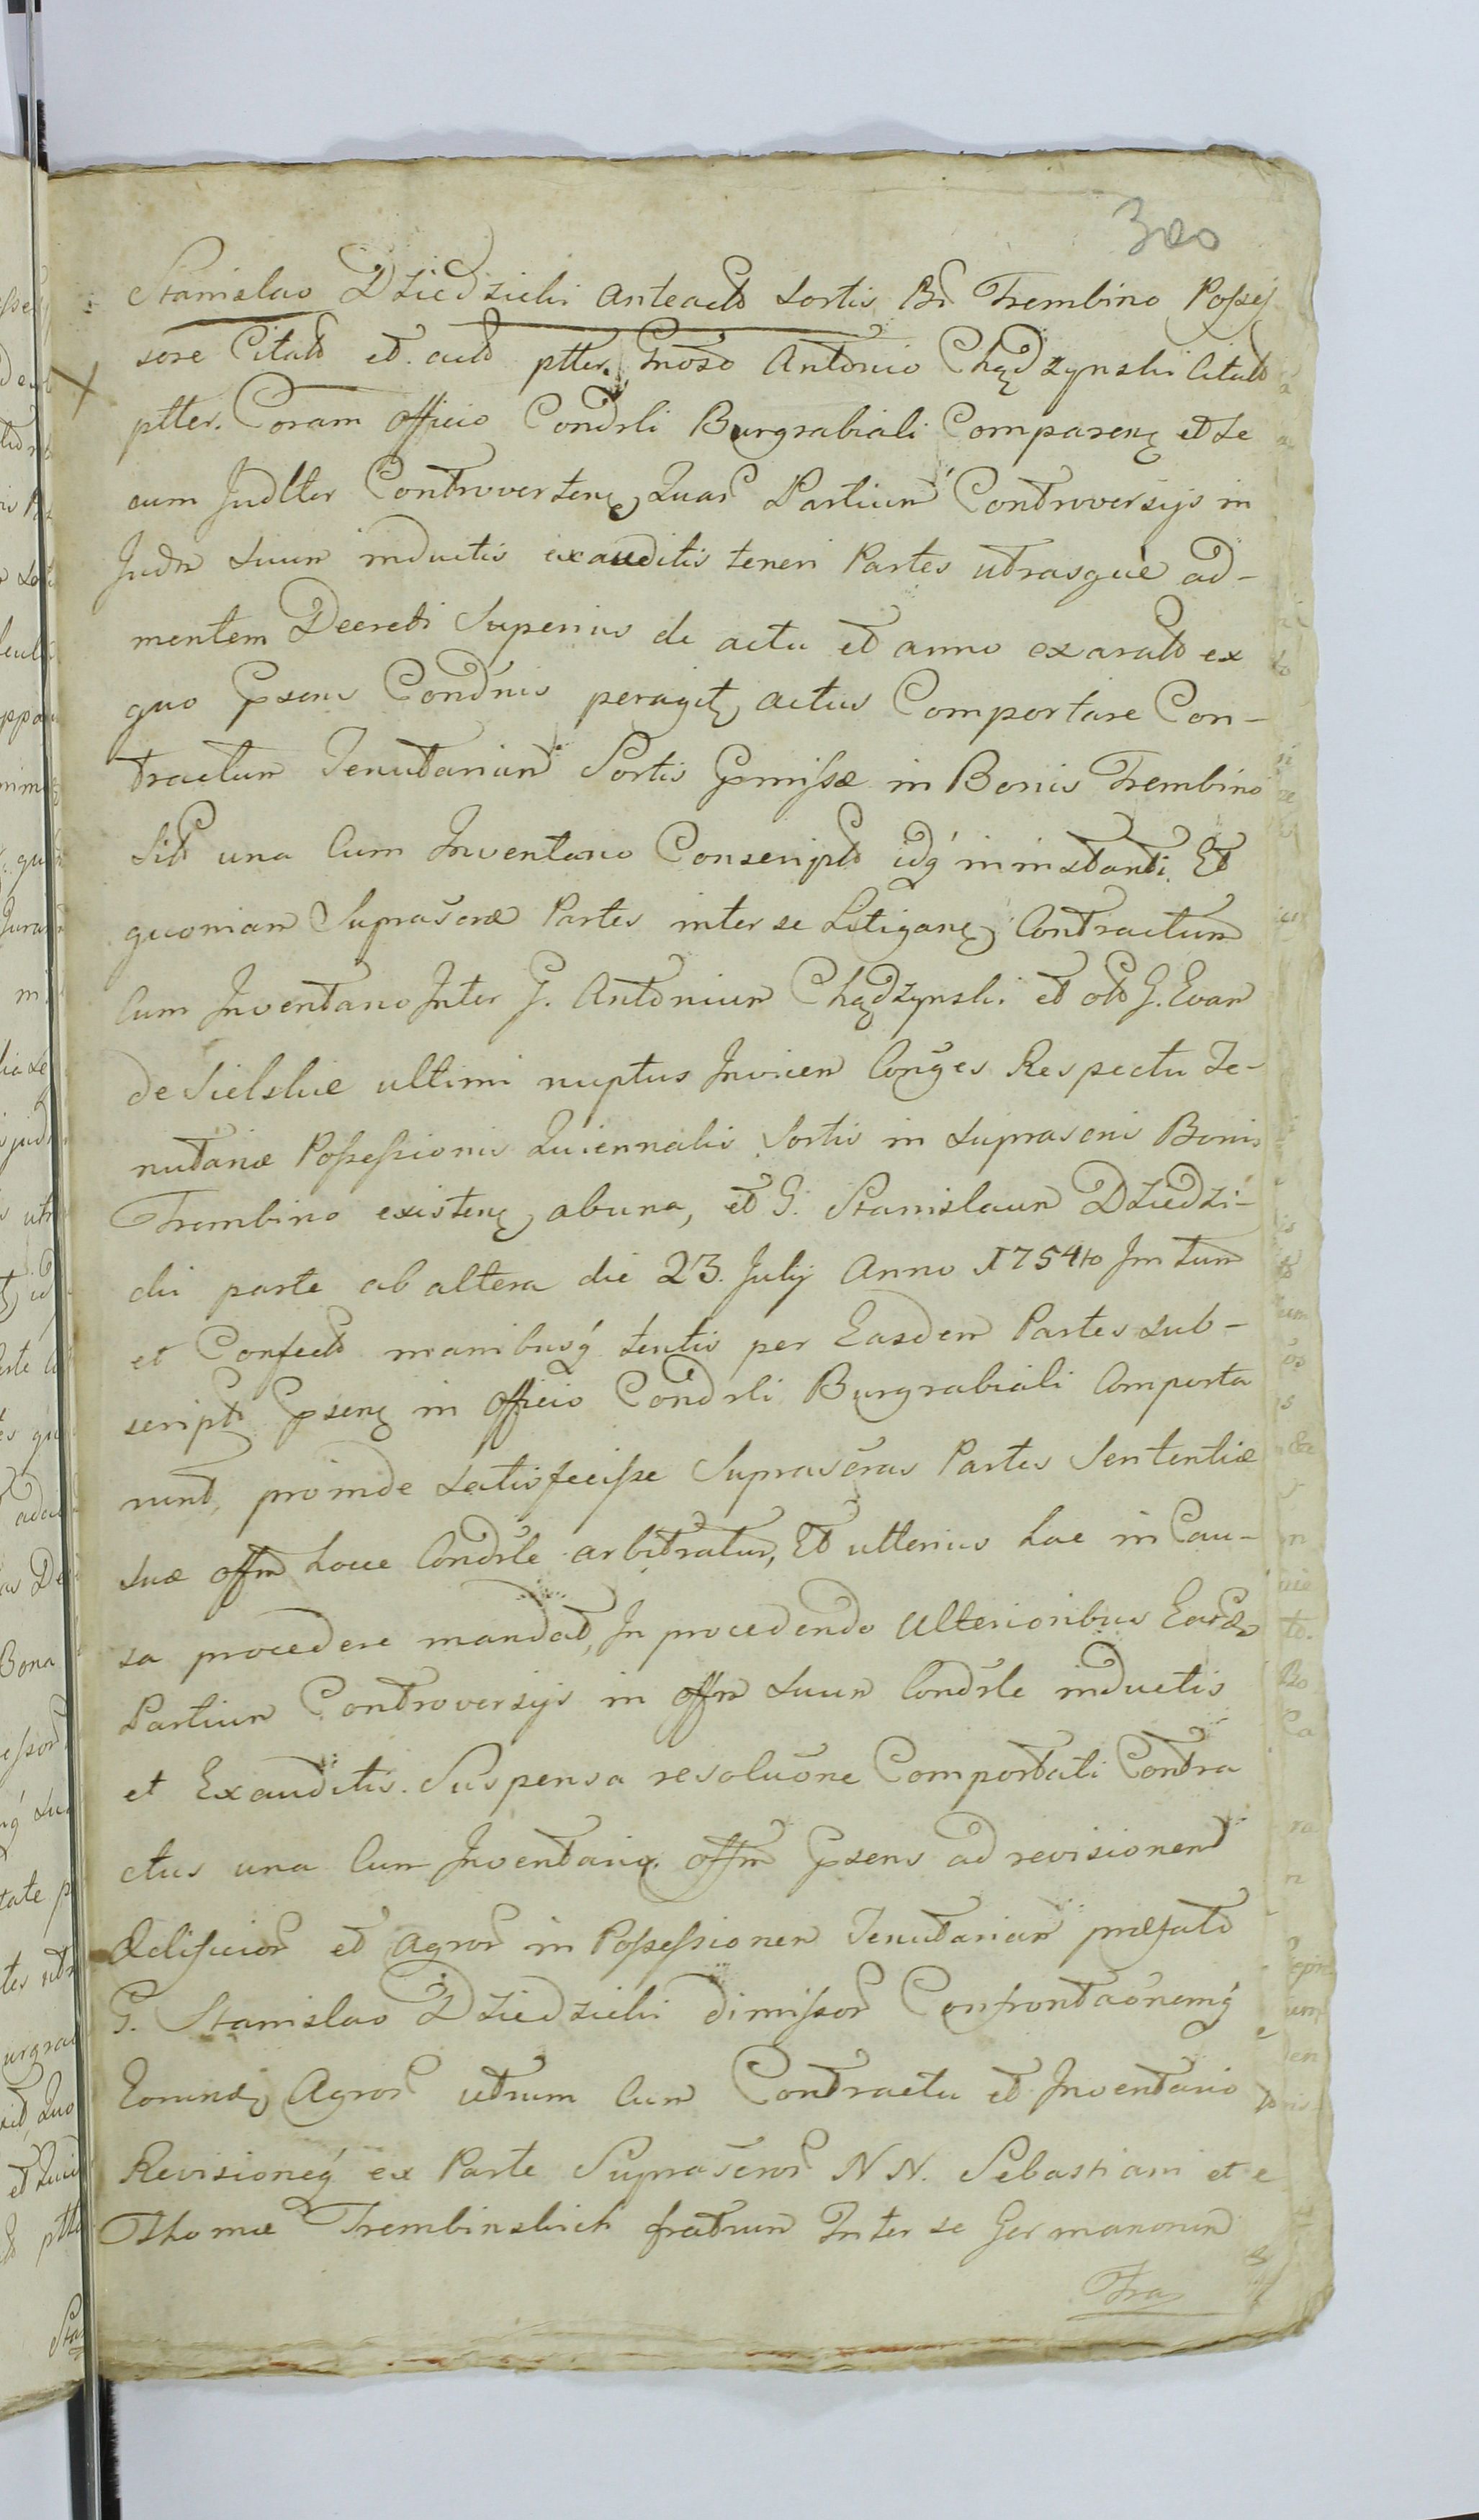 300
Stanislao Dziedzicki anteacto Sortis Br Trembino Posses
sore Citato et acto ptter. Gnoso Antonio Chądzynski Citato
ptter. Coram officio Condrli Burgrabiali Comparenę et Se
cum Judlter Controvertenę, Quar Partium Controversijs in
Judm Suum inductis exauditis teneri Partes utrasque ad-
mentem Decreti Superius de actu et anno exarato ex
quo Psens Condnis peragit, actus Comportare Con-
tractum Tenutarium Sortis Pmissæ in Bonis Trembino
Sit una Cum Inventario Conscripto idq in instanti. Et
quoniam Suprascræ Partes inter se Litiganę, Contractum
Cum Inventario Inter G. Antonium Chądzynski et olo G. Evam
de Sielskie ultimi nuptus Invicem Conges Respectu Te-
nutariæ Possessionis Quiennalis Sortis in suprascris Bonis
Trembino existenę, ab una, et G. Stanislaum Dziedzi-
cki parte ab altera die 23. July Anno 1754to Im tum
et Confecto manibusq tentis per Easdem Partes sub-
script Psenę in Officio Condrli Burgrabiali Comporta
runt, proinde satisfecisse Suprascras Partes Sententiæ
suæ offm hocce Condrle arbitratur, Et ulterius hac in Cau-
sa procedere mandat, In procedendo Ulterioribus Eard
Partium Controversijs in offm suum Condrle inductis
et Exauditis. Suspensa resoluone Comportati Contra
ctus una Cum Inventario. offm Psens ad revisionem
Ædificior et Agror in Possessionem Tenutariam præfato
G. Stanislao Dziedzicki dimissor Confrontaonemq
Eorund, Agror utrum Cum Contractu et Inventario
Revisioneq ex Parte Suprascror NN. Sebastiani et
Thomæ Trembinskich fratrum Inter se Germanorum
Fra